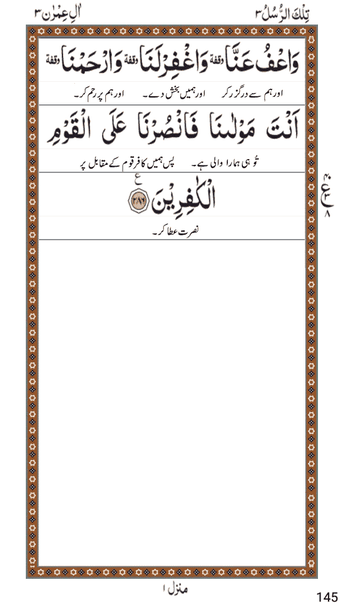 تِلْكَ الرُّسُلُ ٣
اٰلِ عِمْرٰن ٣
وَاعْفُ عَنَّا وقفة وَاغْفِرْ لَنَا وقفة وَارْحَمْنَا وقفة
اور ہم سے درگزر کر اور ہمیں بخش دے۔ اور ہم پر رحم کر۔
اَنْتَ مَوْلٰىنَا فَانْصُرْنَا عَلَى الْقَوْمِ
تُو ہی ہمارا والی ہے۔ پس ہمیں کافر قوم کے مقابل پر
الْكٰفِرِيْنَ ﴿٢٨٧﴾ ع
نصرت عطا کر۔
ع ٨
منزل ١
145